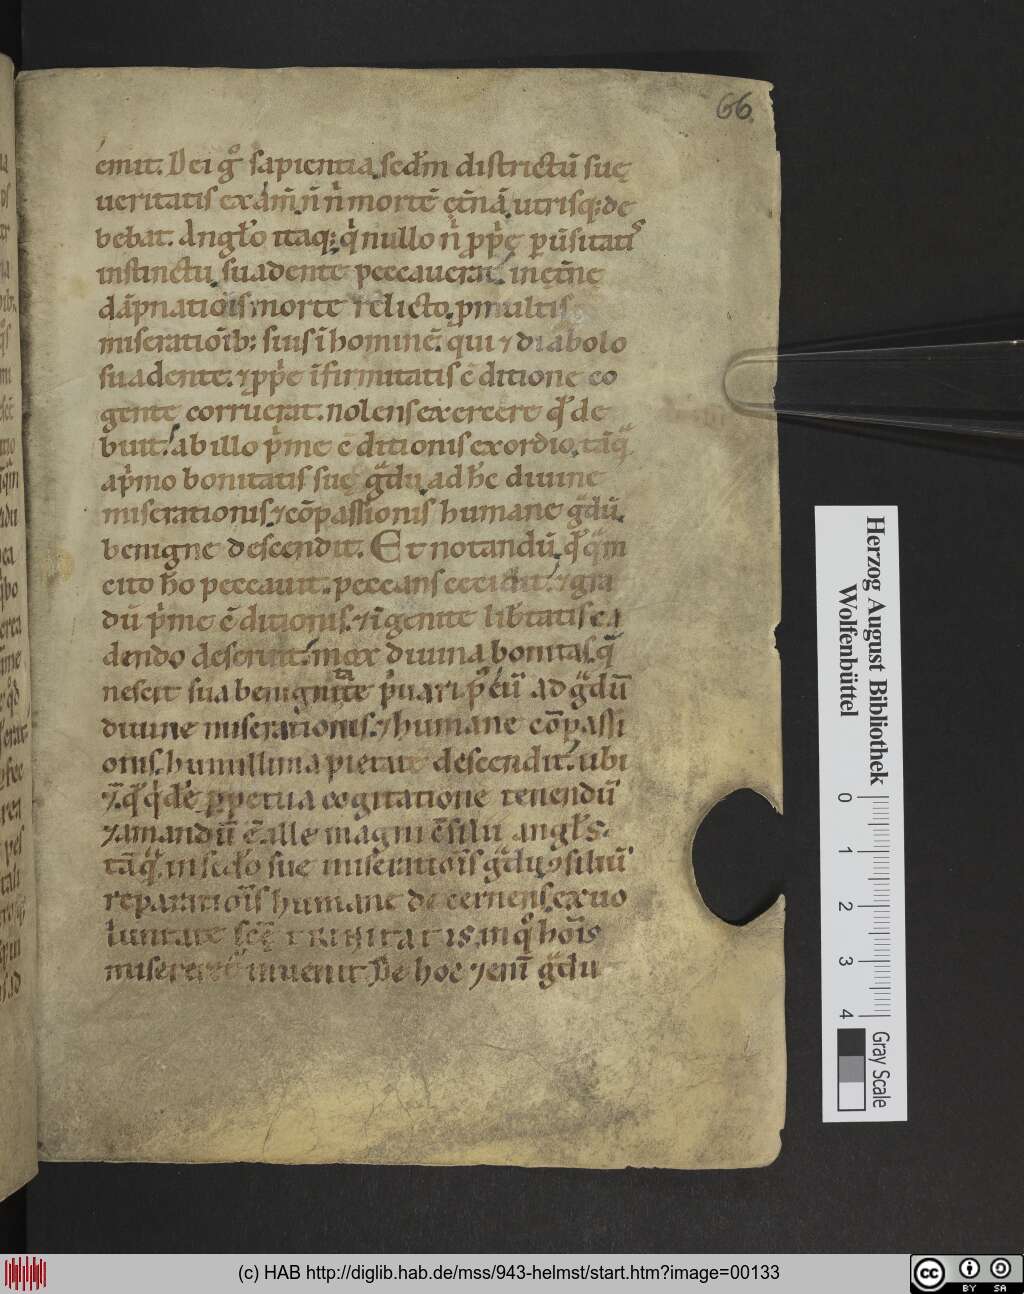 66
emit. Dei gͦ sapientia sedm̄ districtū suę
ueritatis exām̄. n̄ nͥ mortē ęt̄nā utrisq; de
bebat. Angło itaq; qͥ nullo nͥ ꝓpͥę ꝑūsitatiˢ
instinctu suadente peccauerat, in ęt̄ne
dāpnatiōis morte relicto, ꝑ multis
miseratiōib; suis ī hominē. qui ⁊ diabolo
suadente. ⁊ ꝓpͥe īfirmitatis ɔ̄ditione co
gente corruerat. nolens exercere qđ de
buit. ab illo pͥme ɔ̄ditionis exordio, tāqͣ
a pͥmo bonitatis suę gͣdu ad h̄c diuine
miserationis, ⁊ cōpassionis humane gͣdū.
benigne descendit. Et notandū, qđ qͣm
cito hō peccauit. peccans cecidit, ⁊ gra
dū pͥme ɔ̄ditionis. ⁊ īgenite lib̄tatis ca
dendo deseruit. mox diuina bonitas. qͣ
nescit sua benignitate pͥuari p̄ciū ad gͣdū
diuine miserationis. ⁊ humane cōpassi
onis. humillima pietate descendit. ubi
perpetua cogitatione tenendū
⁊ amandū ē. ille magni ɔ̄silii angłs.
tāqͣ in scđo sue miseratiōis gͣdu, filiū
reparatiōis humane decernens, ex uo
luntate scē TRINITATIS, in qͦ hōis
misereret᷑ inuenit. De hoc ⁊enī gͣdu
Herzog August Bibliothek
Wolfenbüttel
0 1 2 3 4
Gray Scale
(c) HAB http://diglib.hab.de/mss/943-helmst/start.htm?image=00133
cc BY SA